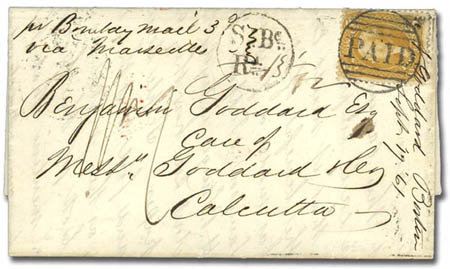 pr Bombay Mail 3d
via Marseille
S. Bs.
Rd.
PAID
Benjamin Goddard Esq
Care of
Messrs Goddard &
Calcutta
Goddard Boston
Sept. 17. 61.